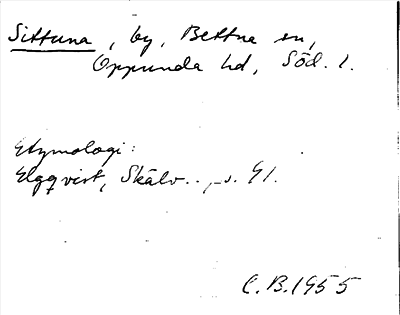 Sittuna, by, Bettna sn,
Oppunda hd, Söd. l.
Etymologi:
Elgqvist, Skälv.., s. 91.
C.B. 1955